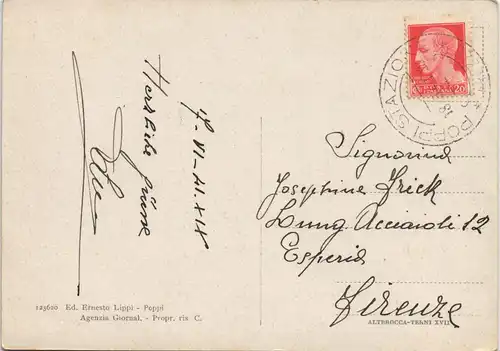 17-VI-41.XIX
Herzliche Grüsse
POPPI STAZIONE
20
Signorina
Josephine Frick
Lung. Acciaioli 12
Esperia
Firenze
123620 Ed. Ernesto Lippi - Poppi
Agenzia Giornal. - Propr. ris C.
ALTEROCCA-TERNI XVII